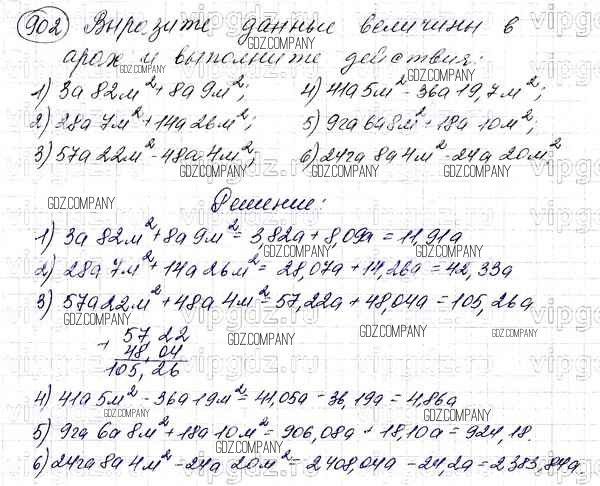 902 Выразите данные величины в
арах и выполните действия:
1) 3а 82м²+8а 9м²; 4) 41а 5м² - 36а 19,7м²;
2) 28а 7м²+14а 26м²; 5) 9га 6а 8м²+18а 10м²;
3) 57а 22м²-48а 4м²; 6) 24га 8а 4м²-24а 20м².
Решение:
1) 3а 82м²+8а 9м²= 3,82а + 8,09а = 11,91а
2) 28а 7м²+14а 26м²= 28,07а + 14,26а = 42,33а
3) 57а 22м²+48а 4м²=57,22а + 48,04а = 105,26а
57,22
+ 48,04
105,26
4) 41а 5м² - 36а 19м²= 41,05а - 36,19а = 4,86а
5) 9га 6а 8м²+18а 10м²= 906,08а + 18,10а = 924,18.
6) 24га 8а 4м² -24а 20м²= 2408,04а -24,2а = 2383,84а.
GDZ.COMPANY
vipgdz.ru